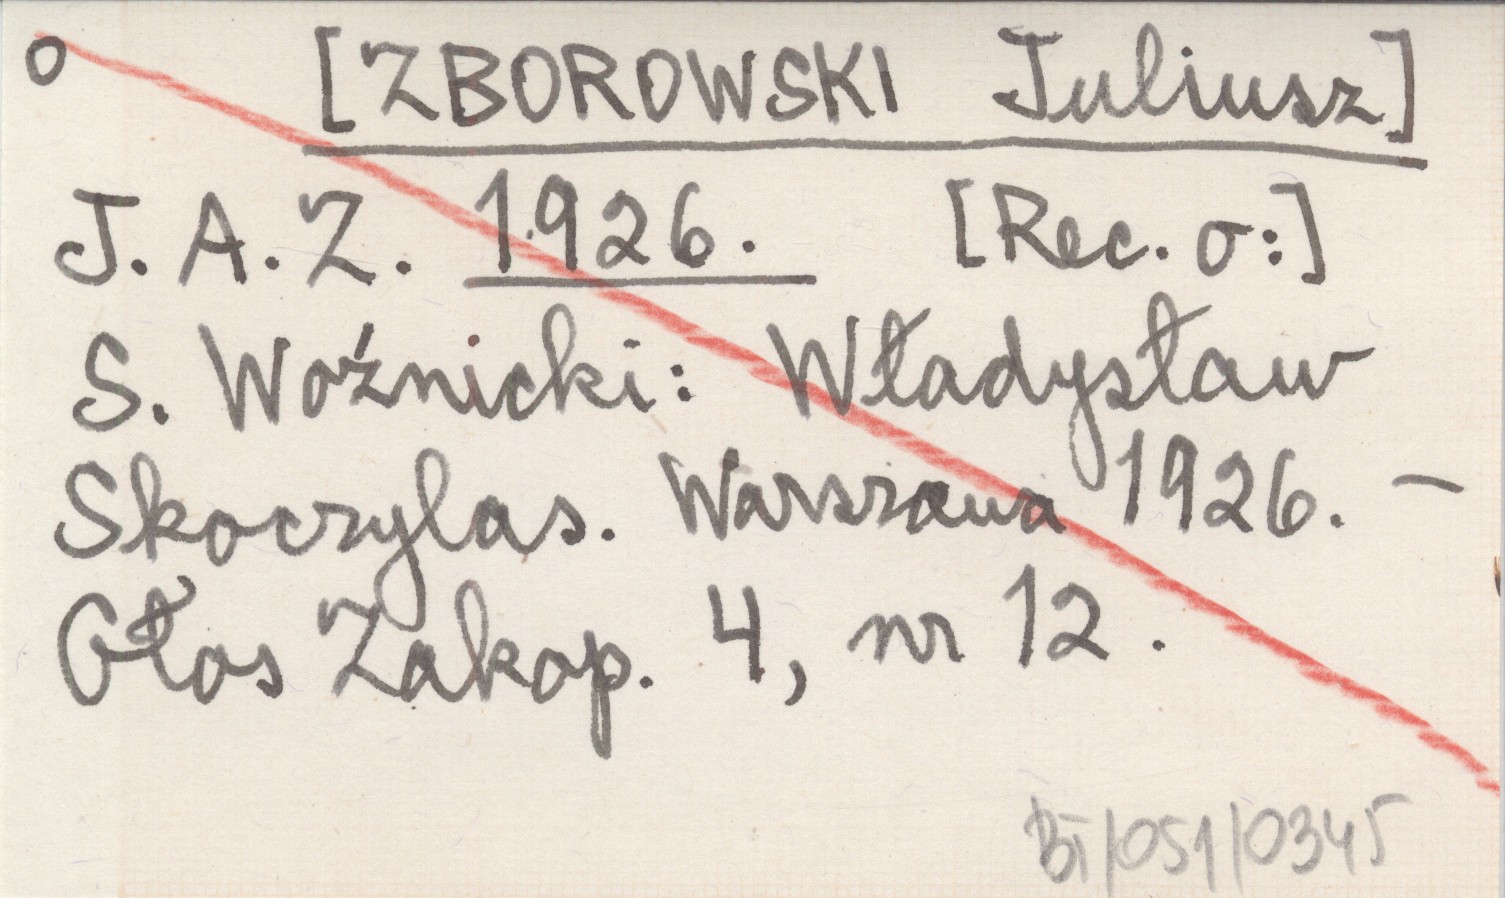 o [ZBOROWSKI Juliusz]
J. A. Z. 1926. [Rec. o:]
S. Woźnicki: Władysław
Skoczylas. Warszawa 1926. —
Głos Zakop. 4, nr 12.
BT/051/0345